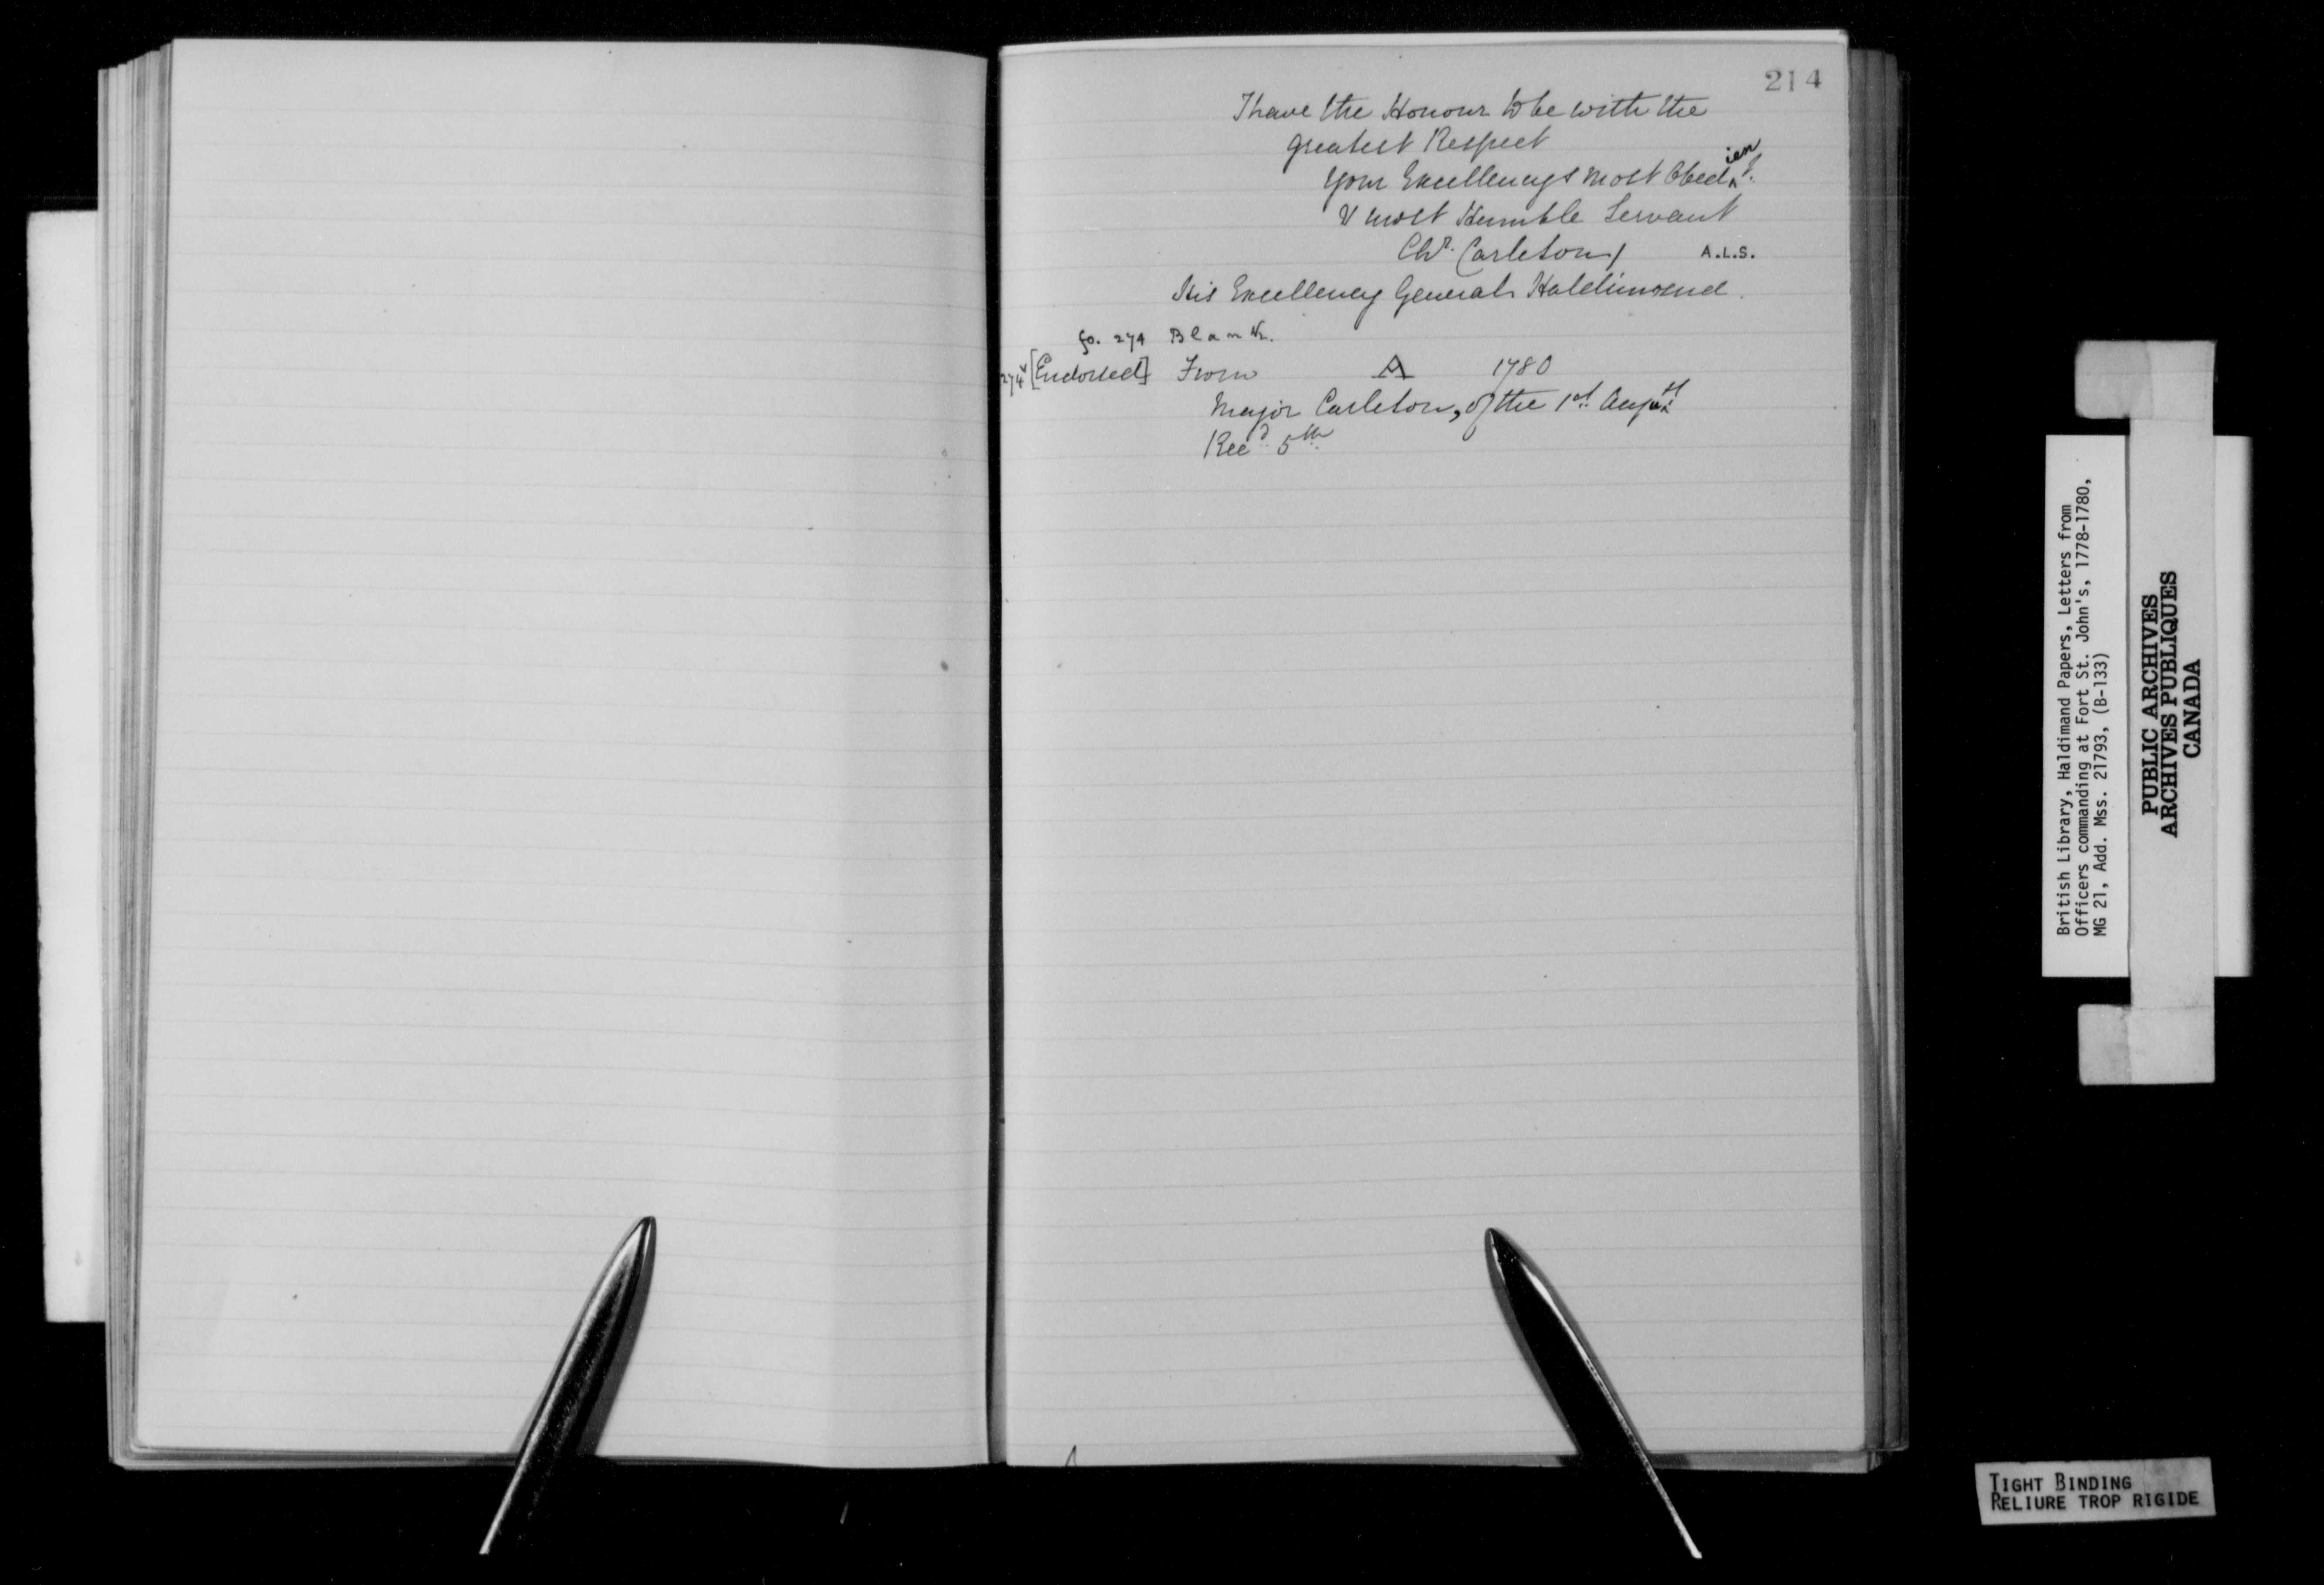 214
I have the Honour to be with the
greatest Respect
Your Excellencys most Obed^ient.
& most Humble Servant
Chr. Carleton / A.L.S.
His Excellency General Haldimand.
fo. 274 Blank.
274v [Endorsed] From A 1780
Major Carleton, of the 1st. Augt
Recd. 5th.
British Library, Haldimand Papers, Letters from
Officers commanding at Fort St. John's, 1778-1780,
MG 21, Add. Mss. 21793, (B-133)
PUBLIC ARCHIVES
ARCHIVES PUBLIQUES
CANADA
TIGHT BINDING
RELIURE TROP RIGIDE